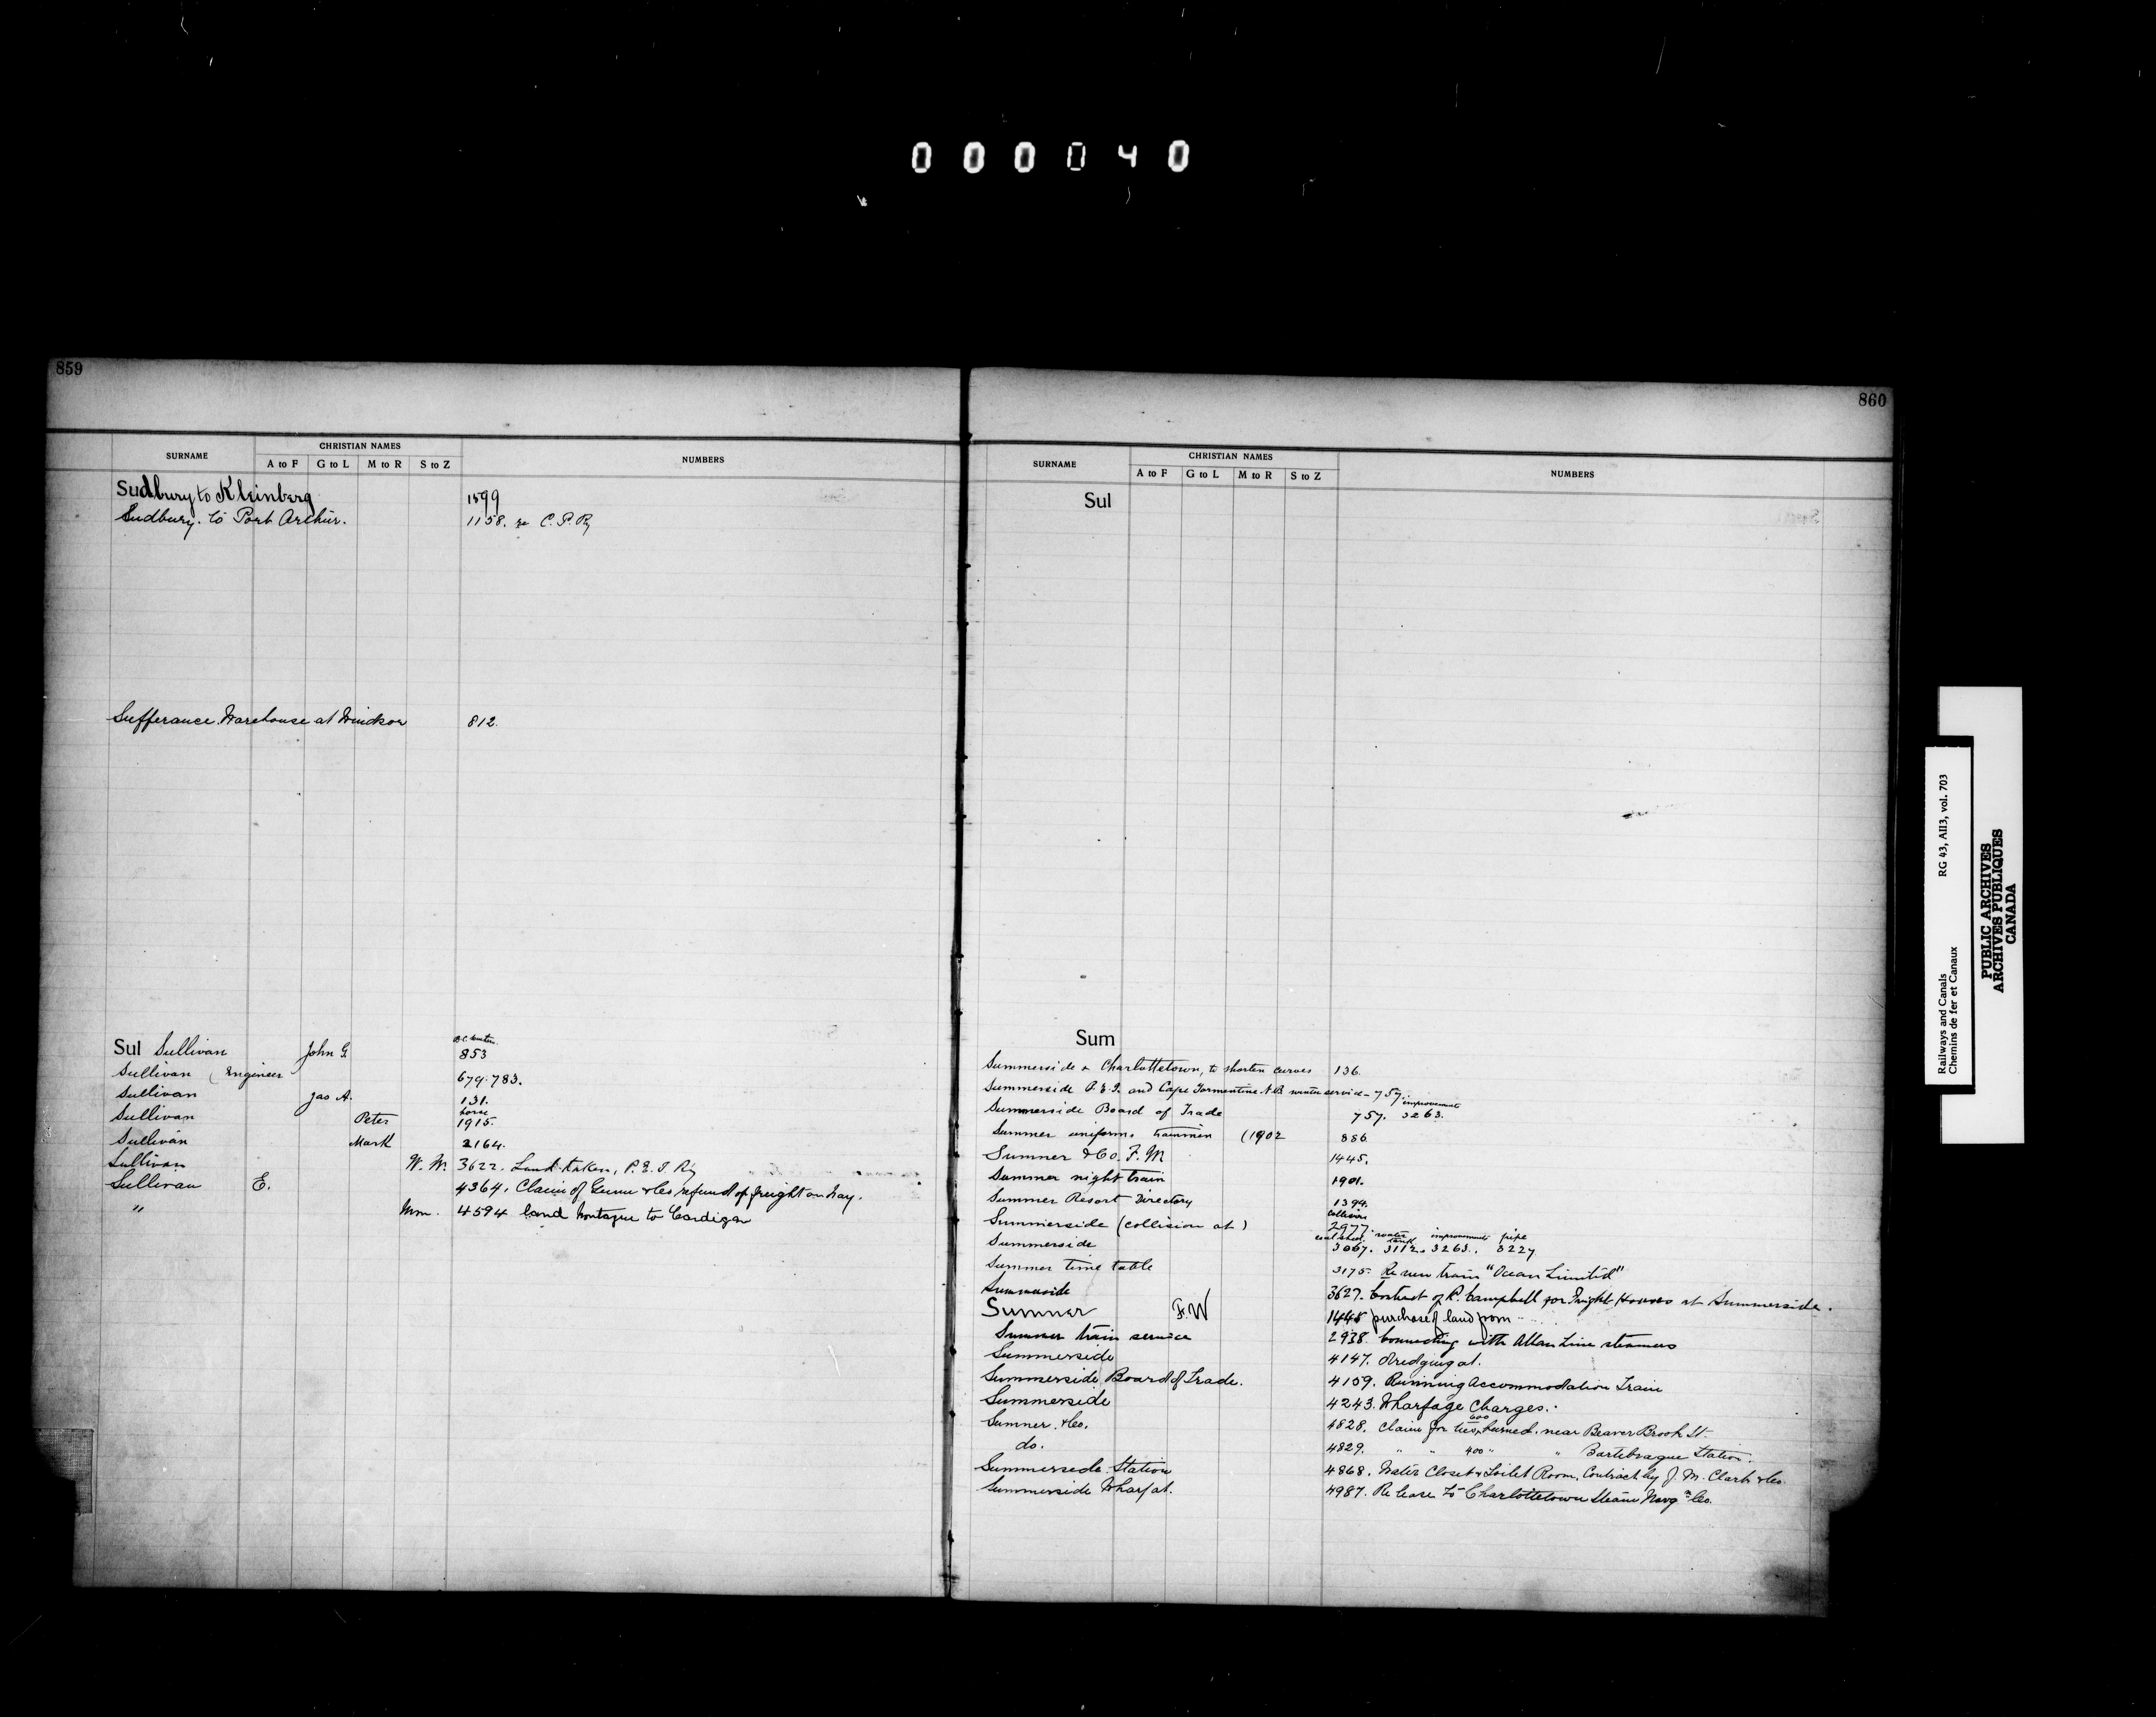 000040
859
SURNAME
CHRISTIAN NAMES
A to F G to L M to R S to Z
NUMBERS
Sudbury to Kleinberg 1599
Sudbury. to Port Arthur. 1158. re C.P.Ry
Sufferance Warehouse at Windsor 812.
Sul Sullivan John G. 853
Sullivan (Engineer 679. 783.
Sullivan Jas A. 131.
Sullivan Peter 1915.
Sullivan Mark 2164.
Sullivan W. W. 3622. Land taken, P.E.I Ry
Sullivan E. 4364. Claim of Gunn & Co refund of freight on hay.
" Wm. 4594 land Montague to Cardigan
860
SURNAME
CHRISTIAN NAMES
A to F G to L M to R S to Z
NUMBERS
Sul
Sum
Summerside & Charlottetown, to shorten curves 136.
Summerside P.E.I. and Cape Tormentine N.B. winter service - 757.
improvements
Summerside Board of Trade 757. 3263.
Summer uniforms trainmen (1902 886
Sumner & Co. F. M 1445.
Summer night train 1901.
Summer Resort Directory 1394.
collision
Summerside (collision at) 2977.
coal shed. water tank improvements pipe
Summerside 3067. 3112. 3263. 3227
Summer time table 3175. Re new train "Ocean Limited"
Summerside 3627. Contract of R. Campbell for Freight Houses at Summerside.
Sumner F.W 1445 purchase of land from
Summer train service 2938. Connecting with Allan Line steamers
Summerside 4147. dredging at.
Summerside Board of Trade. 4159. Running Accommodation Train
Summerside 4243. Wharfage Charges.
600
Sumner & Co. 4828. Claim for ties burned. near Beaver Brook St.
do. 4829. " " 400 " " Bartibogue Station.
Summerside Station 4868. Water Closet & Toilet Room, Contract by J. M. Clark & Co.
Summerside Wharf at. 4987. Re lease to Charlottetown Steam Navgn Co.
Railways and Canals RG 43, AII3, vol. 703
Chemins de fer et Canaux
PUBLIC ARCHIVES
ARCHIVES PUBLIQUES
CANADA